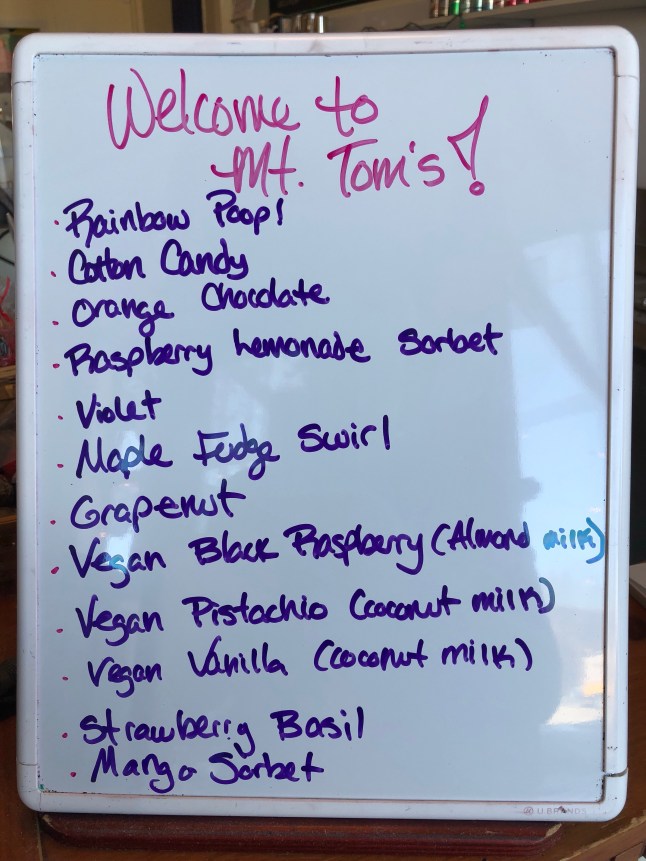 Welcome to
Mt. Tom's!
· Rainbow Poop!
· Cotton Candy
· Orange Chocolate
· Raspberry Lemonade Sorbet
· Violet
· Maple Fudge Swirl
· Grapenut
· Vegan Black Raspberry (Almond milk)
· Vegan Pistachio (coconut milk)
· Vegan Vanilla (coconut milk)
· Strawberry Basil
· Mango Sorbet
U BRANDS